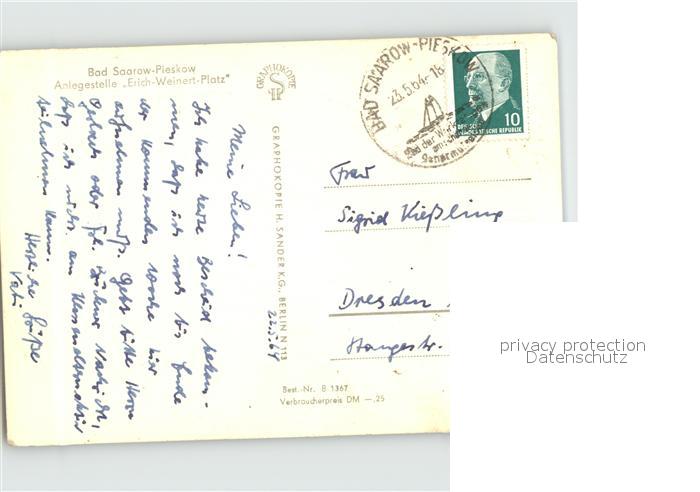 Bad Saarow-Pieskow
Anlegestelle „Erich-Weinert-Platz"
GRAPHOKOPIE
GRAPHOKOPIE H. SANDER K.G., BERLIN N 113
BAD SAAROW-PIESKOW
23.5.64-18
Bad der Werktätigen
am Scharmützel
10
DEUTSCHE
DEMOKRATISCHE REPUBLIK
22.5.64
Meine Lieben!
Ich habe heute Bescheid bekom-
men, daß ich noch bis Ende
der kommenden Woche hier
aufnehmen muß. Gebt bitte Herrn
Gebach oder Frl. Nachricht,
daß ich nicht am
teilnehmen kann.
Herzliche Grüße
Vati
Frau
Sigrid Kießling
Dresden
str.
Best.-Nr. B 1367
Verbraucherpreis DM —,25
privacy protection
Datenschutz